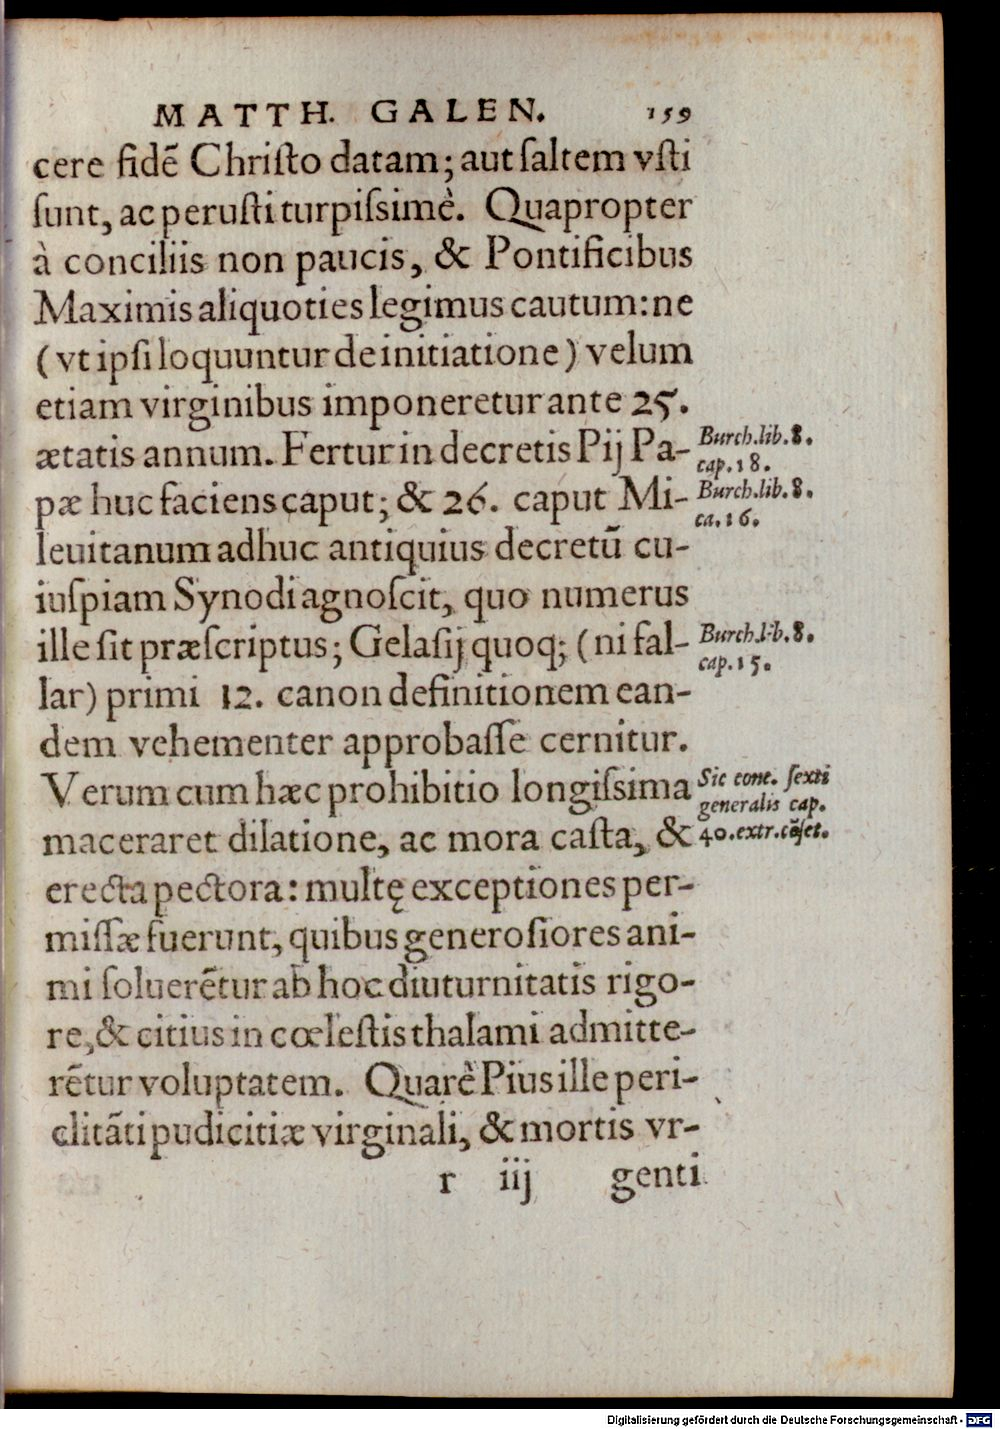 MATTH. GALEN. 159
cere fidē Chriſto datam; aut ſaltem vſti
ſunt, ac peruſti turpiſsimè. Quapropter
à conciliis non paucis, & Pontificibus
Maximis aliquoties legimus cautum: ne
(vt ipſi loquuntur de initiatione) velum
etiam virginibus imponeretur ante 25.
ætatis annum. Fertur in decretis Pij Pa-
Burch.lib.8.
cap.18.
pæ huc faciens caput; & 26. caput Mi-
Burch.lib.8.
ca.16.
leuitanum adhuc antiquius decretū cu-
iuſpiam Synodi agnoſcit, quo numerus
ille ſit præſcriptus; Gelaſij quoq; (ni fal-
Burch.lib.8.
cap.15.
lar) primi 12. canon definitionem ean-
dem vehementer approbaſſe cernitur.
Verum cum hæc prohibitio longiſsima
Sic conc. ſexti
generalis cap.
40.extr.cōſet.
maceraret dilatione, ac mora caſta, &
erecta pectora: multę exceptiones per-
miſſæ fuerunt, quibus generoſiores ani-
mi ſoluerētur ab hoc diuturnitatis rigo-
re, & citius in cœleſtis thalami admitte-
rētur voluptatem. Quarè Pius ille peri-
clitāti pudicitiæ virginali, & mortis vr-
r iij genti
Digitalisierung gefördert durch die Deutsche Forschungsgemeinschaft - DFG